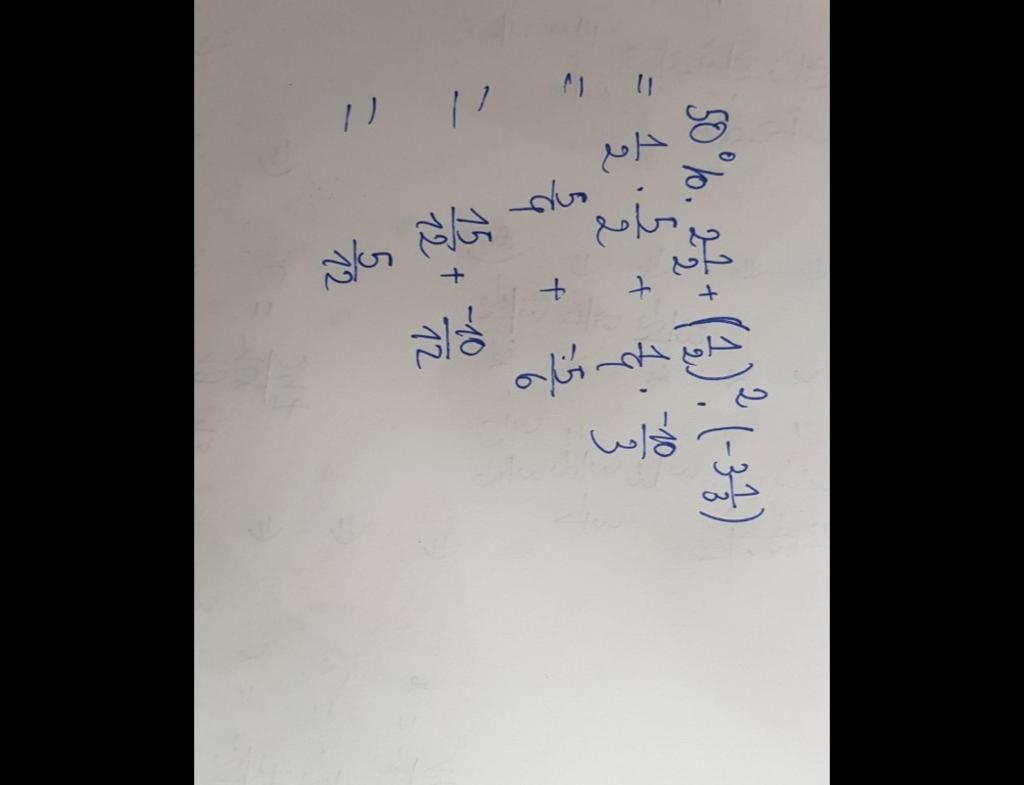 50%. 2 1/2 + (1/2)² . (-3 1/3)
= 1/2 . 5/2 + 1/4 . -10/3
= 5/4 + -5/6
= 15/12 + -10/12
= 5/12